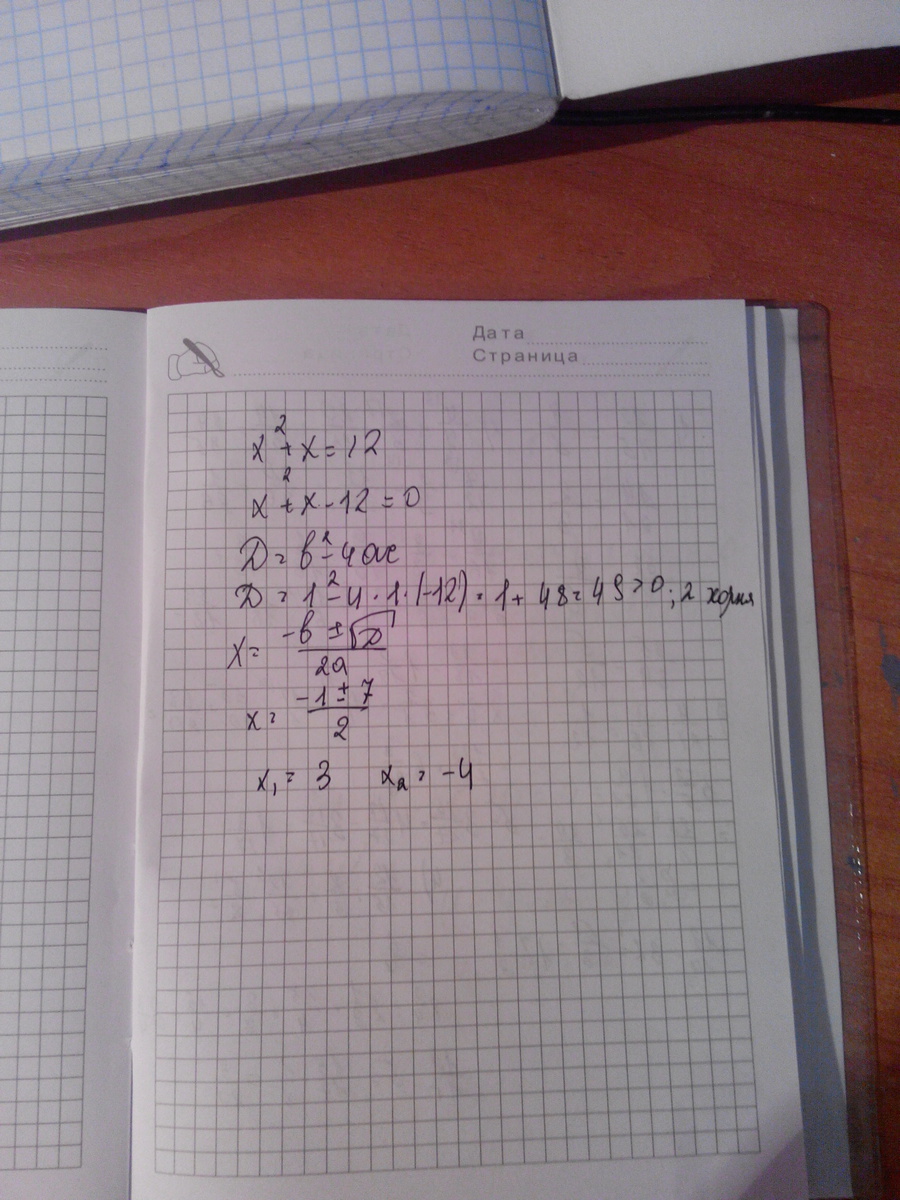 Дата
Страница
x² + x = 12
x² + x - 12 = 0
D = b² - 4ac
D = 1² - 4 · 1 · (-12) = 1 + 48 = 49 > 0; 2 корня
x = (-b ± √D) / 2a
x = (-1 ± 7) / 2
x₁ = 3 x₂ = -4